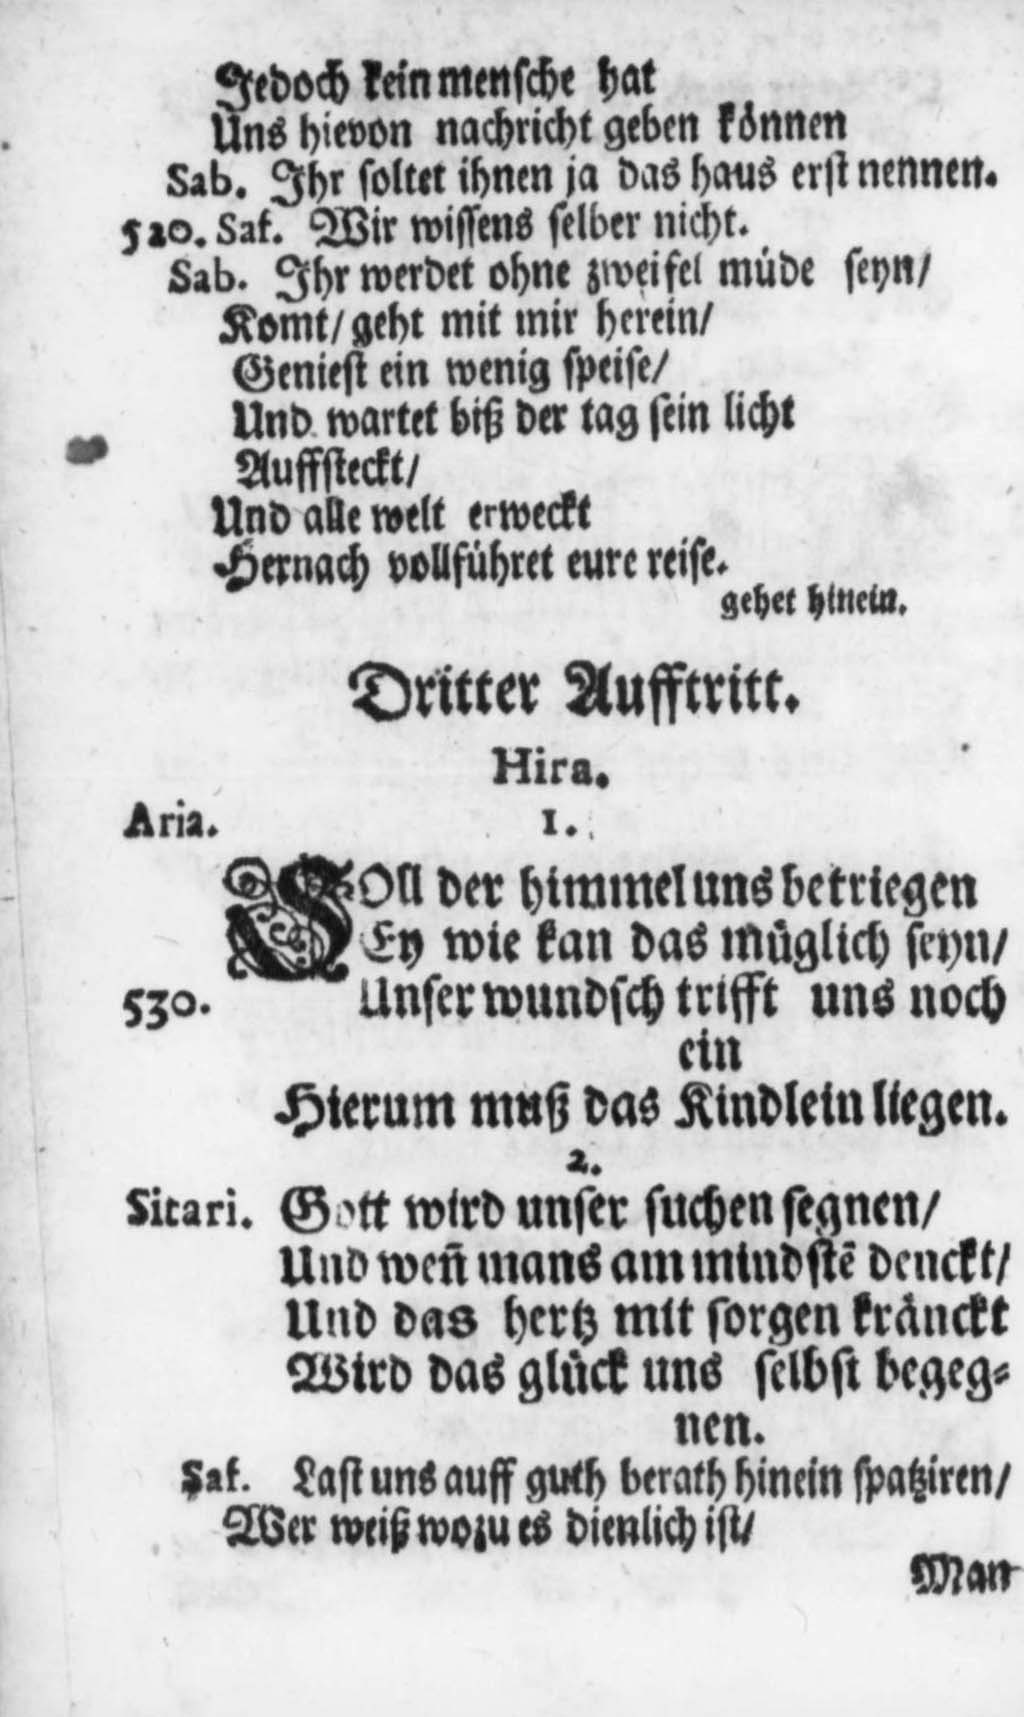 Jedoch kein mensche hat
Uns hievon nachricht geben können
Sab. Jhr soltet ihnen ja das haus erst nennen.
520. Sak. Wir wissens selber nicht.
Sab. Jhr werdet ohne zweifel müde seyn/
Komt/ geht mit mir herein/
Geniest ein wenig speise/
Und wartet biß der tag sein licht
Auffsteckt/
Und alle welt erweckt
Hernach vollführet eure reise.
gehet hinein.
Dritter Aufftritt.
Hira.
Aria. 1.
SOll der himmel uns betriegen
Ey wie kan das müglich seyn/
530. Unser wundsch trifft uns noch
ein
Hierum muß das Kindlein liegen.
2.
Sitari. Gott wird unser suchen segnen/
Und wen̄ mans am mindstē denckt/
Und das hertz mit sorgen kränckt
Wird das glück uns selbst begeg-
nen.
Sak. Last uns auff guth berath hinein spatziren/
Wer weiß wozu es dienlich ist/
Man